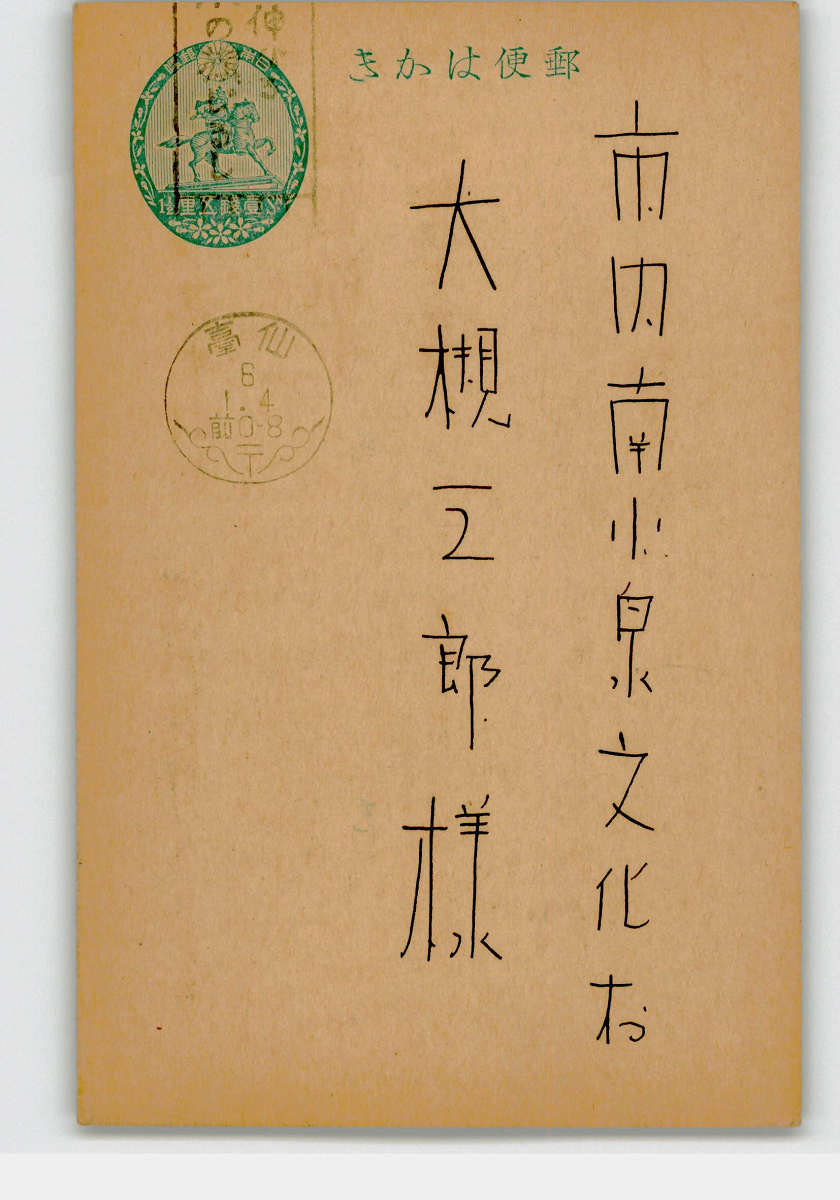 郵便はかき
市内南小泉文化村
大槻三郎様
壹錢五厘
仙臺
6
1.4
前0-8